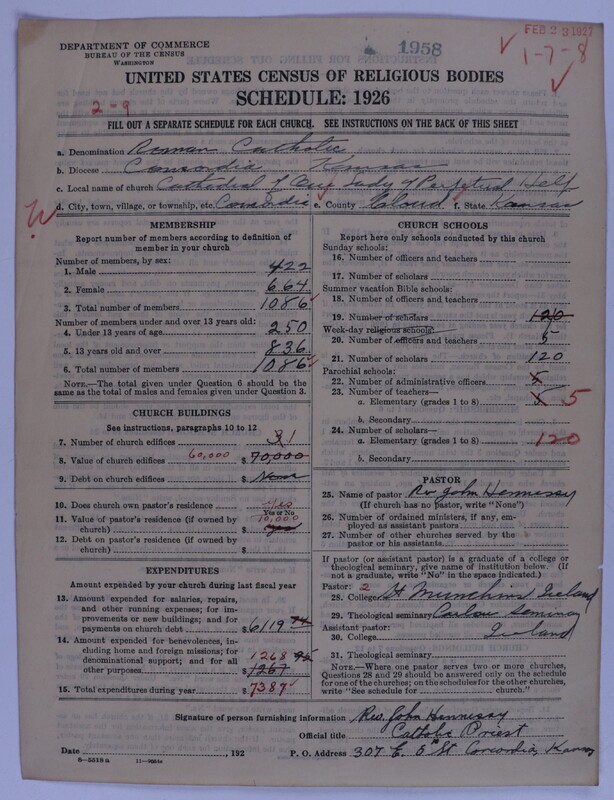 FEB 23 1927
1958
1-7-8
DEPARTMENT OF COMMERCE
BUREAU OF THE CENSUS
WASHINGTON
UNITED STATES CENSUS OF RELIGIOUS BODIES
SCHEDULE: 1926
2-9
FILL OUT A SEPARATE SCHEDULE FOR EACH CHURCH. SEE INSTRUCTIONS ON THE BACK OF THIS SHEET
a. Denomination Roman Catholic
b. Diocese Concordia Kansas
c. Local name of church Cathedral of Our Lady of Perpetual Help
d. City, town, village, or township, etc. Concordia e. County Cloud f. State Kansas
MEMBERSHIP
Report number of members according to definition of
member in your church
Number of members, by sex:
1. Male 422
2. Female 664
3. Total number of members 1086
Number of members under and over 13 years old:
4. Under 13 years of age 250
5. 13 years old and over 836
6. Total number of members 1086
NOTE.—The total given under Question 6 should be
same as the total of males and females given under Question 3.
CHURCH BUILDINGS
See instructions, paragraphs 10 to 12
7. Number of church edifices 3 1
8. Value of church edifices 60,000 $ 70,000
9. Debt on church edifices $ None
10. Does church own pastor's residence Yes
Yes or No
11. Value of pastor's residence (if owned by
church) $ 10,000 yes
12. Debt on pastor's residence (if owned by
church) $
EXPENDITURES
Amount expended by your church during last fiscal year
13. For salaries, repairs,
and other running expenses; for im-
provements or new buildings; and for
payments on church debt $ 6119
14. For benevolences, in-
cluding home and foreign missions; for
denominational support; and for all
other purposes 1268 $ 1267
15. Total expenditures during year $ 7387
CHURCH SCHOOLS
Report here only schools conducted by this church
Sunday schools:
16. Number of officers and teachers
17. Number of scholars
Summer vacation Bible schools:
18. Number of officers and teachers
19. Number of scholars 120
Week-day religious schools:
20. Number of officers and teachers 5
21. Number of scholars 120
Parochial schools:
22. Number of administrative officers 5
23. Number of teachers—
a. Elementary (grades 1 to 8) 5 5
b. Secondary
24. Number of scholars—
a. Elementary (grades 1 to 8) 120
b. Secondary
PASTOR
25. Name of pastor Rev John Hennessy
(If church has no pastor, write "None")
26. Number of ordained ministers, if any, em-
ployed as assistant pastors
27. Number of other churches served by the
pastor or his assistants
If pastor (or assistant pastor) is a graduate of a college or
theological seminary, give name of institution below. (If
not a graduate, write "No" in the space indicated.)
Pastor: 2
28. College St Munchins Ireland
29. Theological seminary Carlow Seminary
Assistant pastor:
30. College Ireland
31. Theological seminary
NOTE.—Where one pastor serves two or more churches,
Questions 28 and 29 should be answered only on the schedule
for one of the churches; on the schedules for the other churches,
write "See schedule for church."
Signature of person furnishing information Rev. John Hennessy
Official title Catholic Priest
Date , 192 P. O. Address 307 E. 5th St Concordia, Kansas
8-5518a